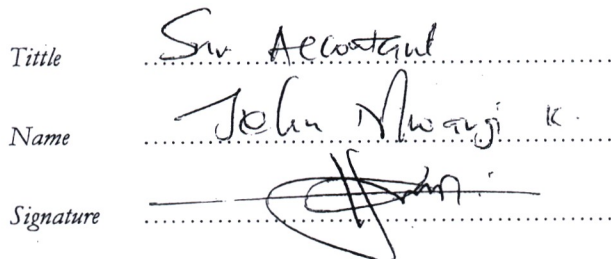 Tittle Snr Accountant
Name John Mwangi K.
Signature